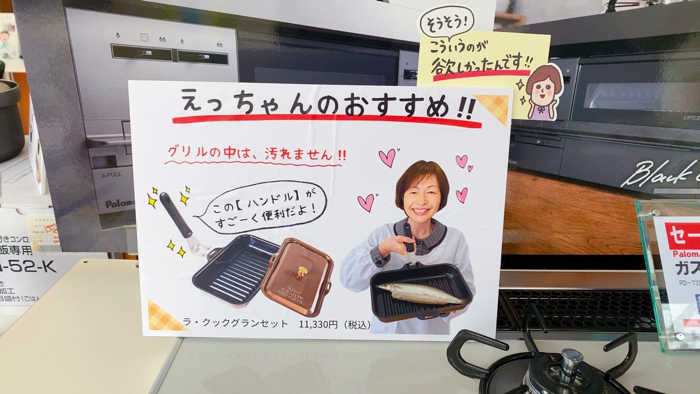 そうそう!
こういうのが
欲しかったんです!!
えっちゃんのおすすめ!!
グリルの中は、汚れません!!
この【ハンドル】が
すごーく便利だよ!
ラ・クックグランセット 11,330円（税込）
▲PULL
Paloma
-52-K
セー
Paloma
ガス